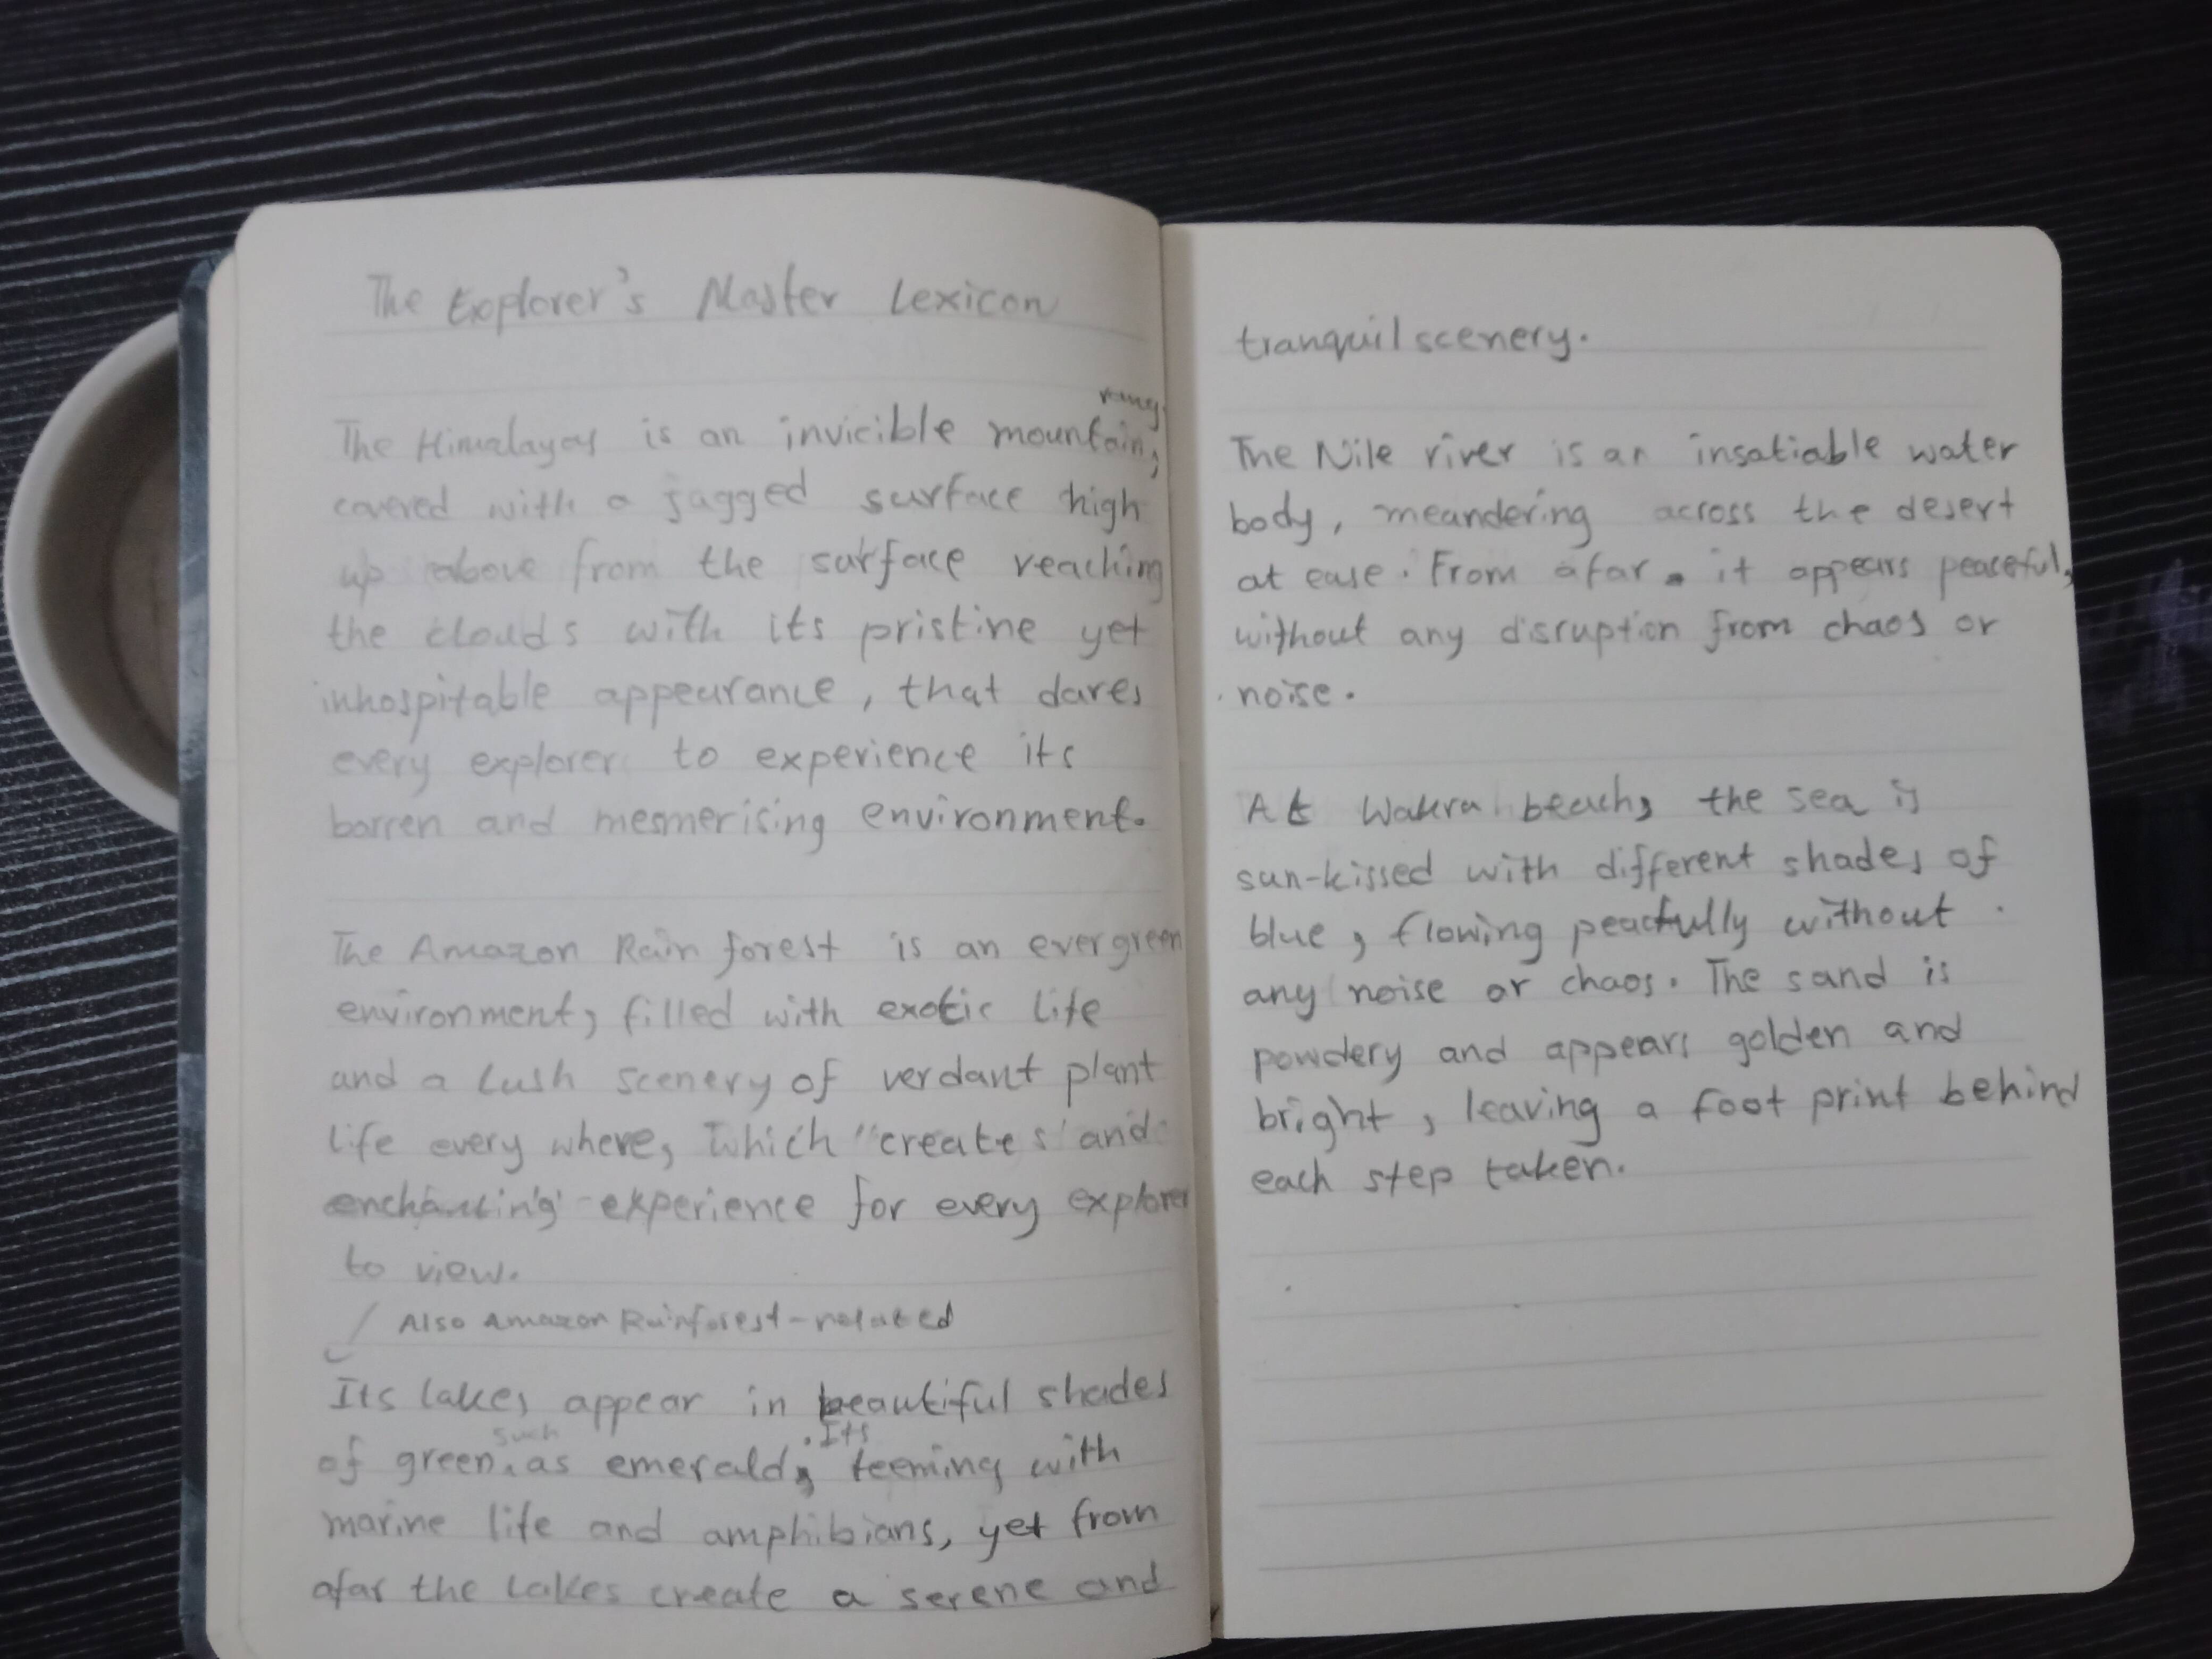 The Explorer's Master Lexicon
rang
The Himalayas is an invicible mountain,
covered with a jagged surface high
up above from the surface reaching
the clouds with its pristine yet
inhospitable appearance, that dares
every explorer to experience its
barren and mesmerising environment.
The Amazon Rain forest is an evergreen
environment, filled with exotic life
and a lush scenery of verdant plant
life every where, which creates and
enchanting experience for every explorer
to view.
Also Amazon Rainforest-related
Its lakes appear in beautiful shades
such . Its
of green, as emerald, teeming with
marine life and amphibians, yet from
afar the lakes create a serene and
tranquil scenery.
The Nile river is an insatiable water
body, meandering across the desert
at ease. From afar it appears peaceful,
without any disruption from chaos or
noise.
At Wakra beach, the sea is
sun-kissed with different shades of
blue, flowing peacfully without
any noise or chaos. The sand is
powdery and appears golden and
bright, leaving a foot print behind
each step taken.